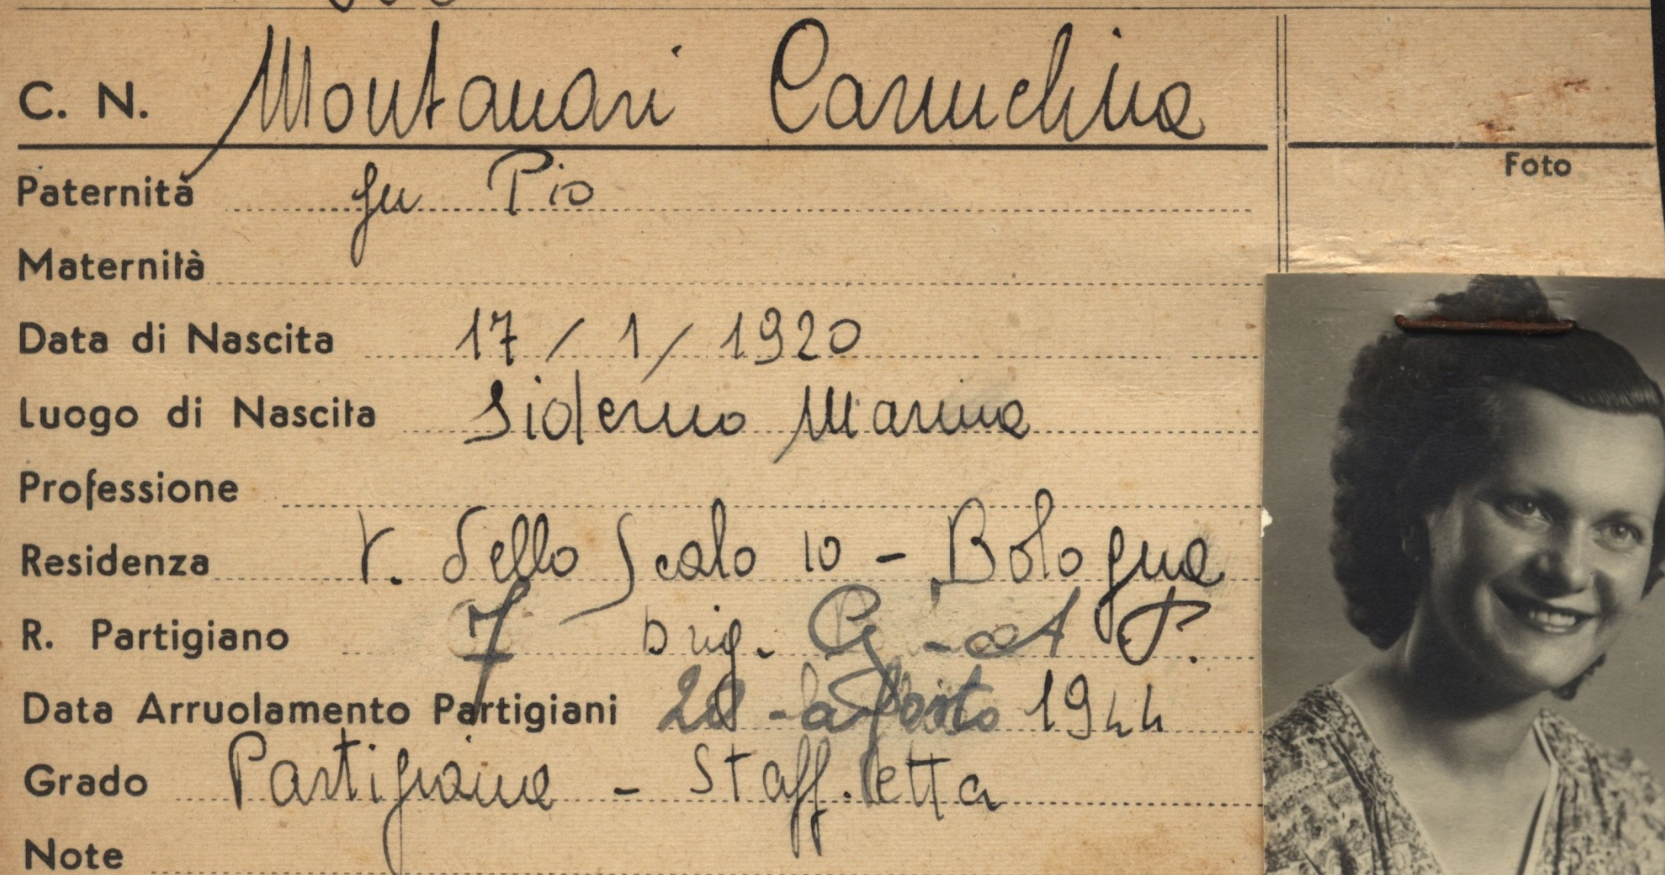 C. N. Montanari Carmchina
Foto
Paternità fu Pio
Maternità
Data di Nascita 17 / 1 / 1920
Luogo di Nascita Siderno Marina
Professione
Residenza V. dello Scalo 10 - Bologna
R. Partigiano 7 brig. G.A.P.
Data Arruolamento Partigiani agosto 1944
Grado Partigiana - Staffetta
Note